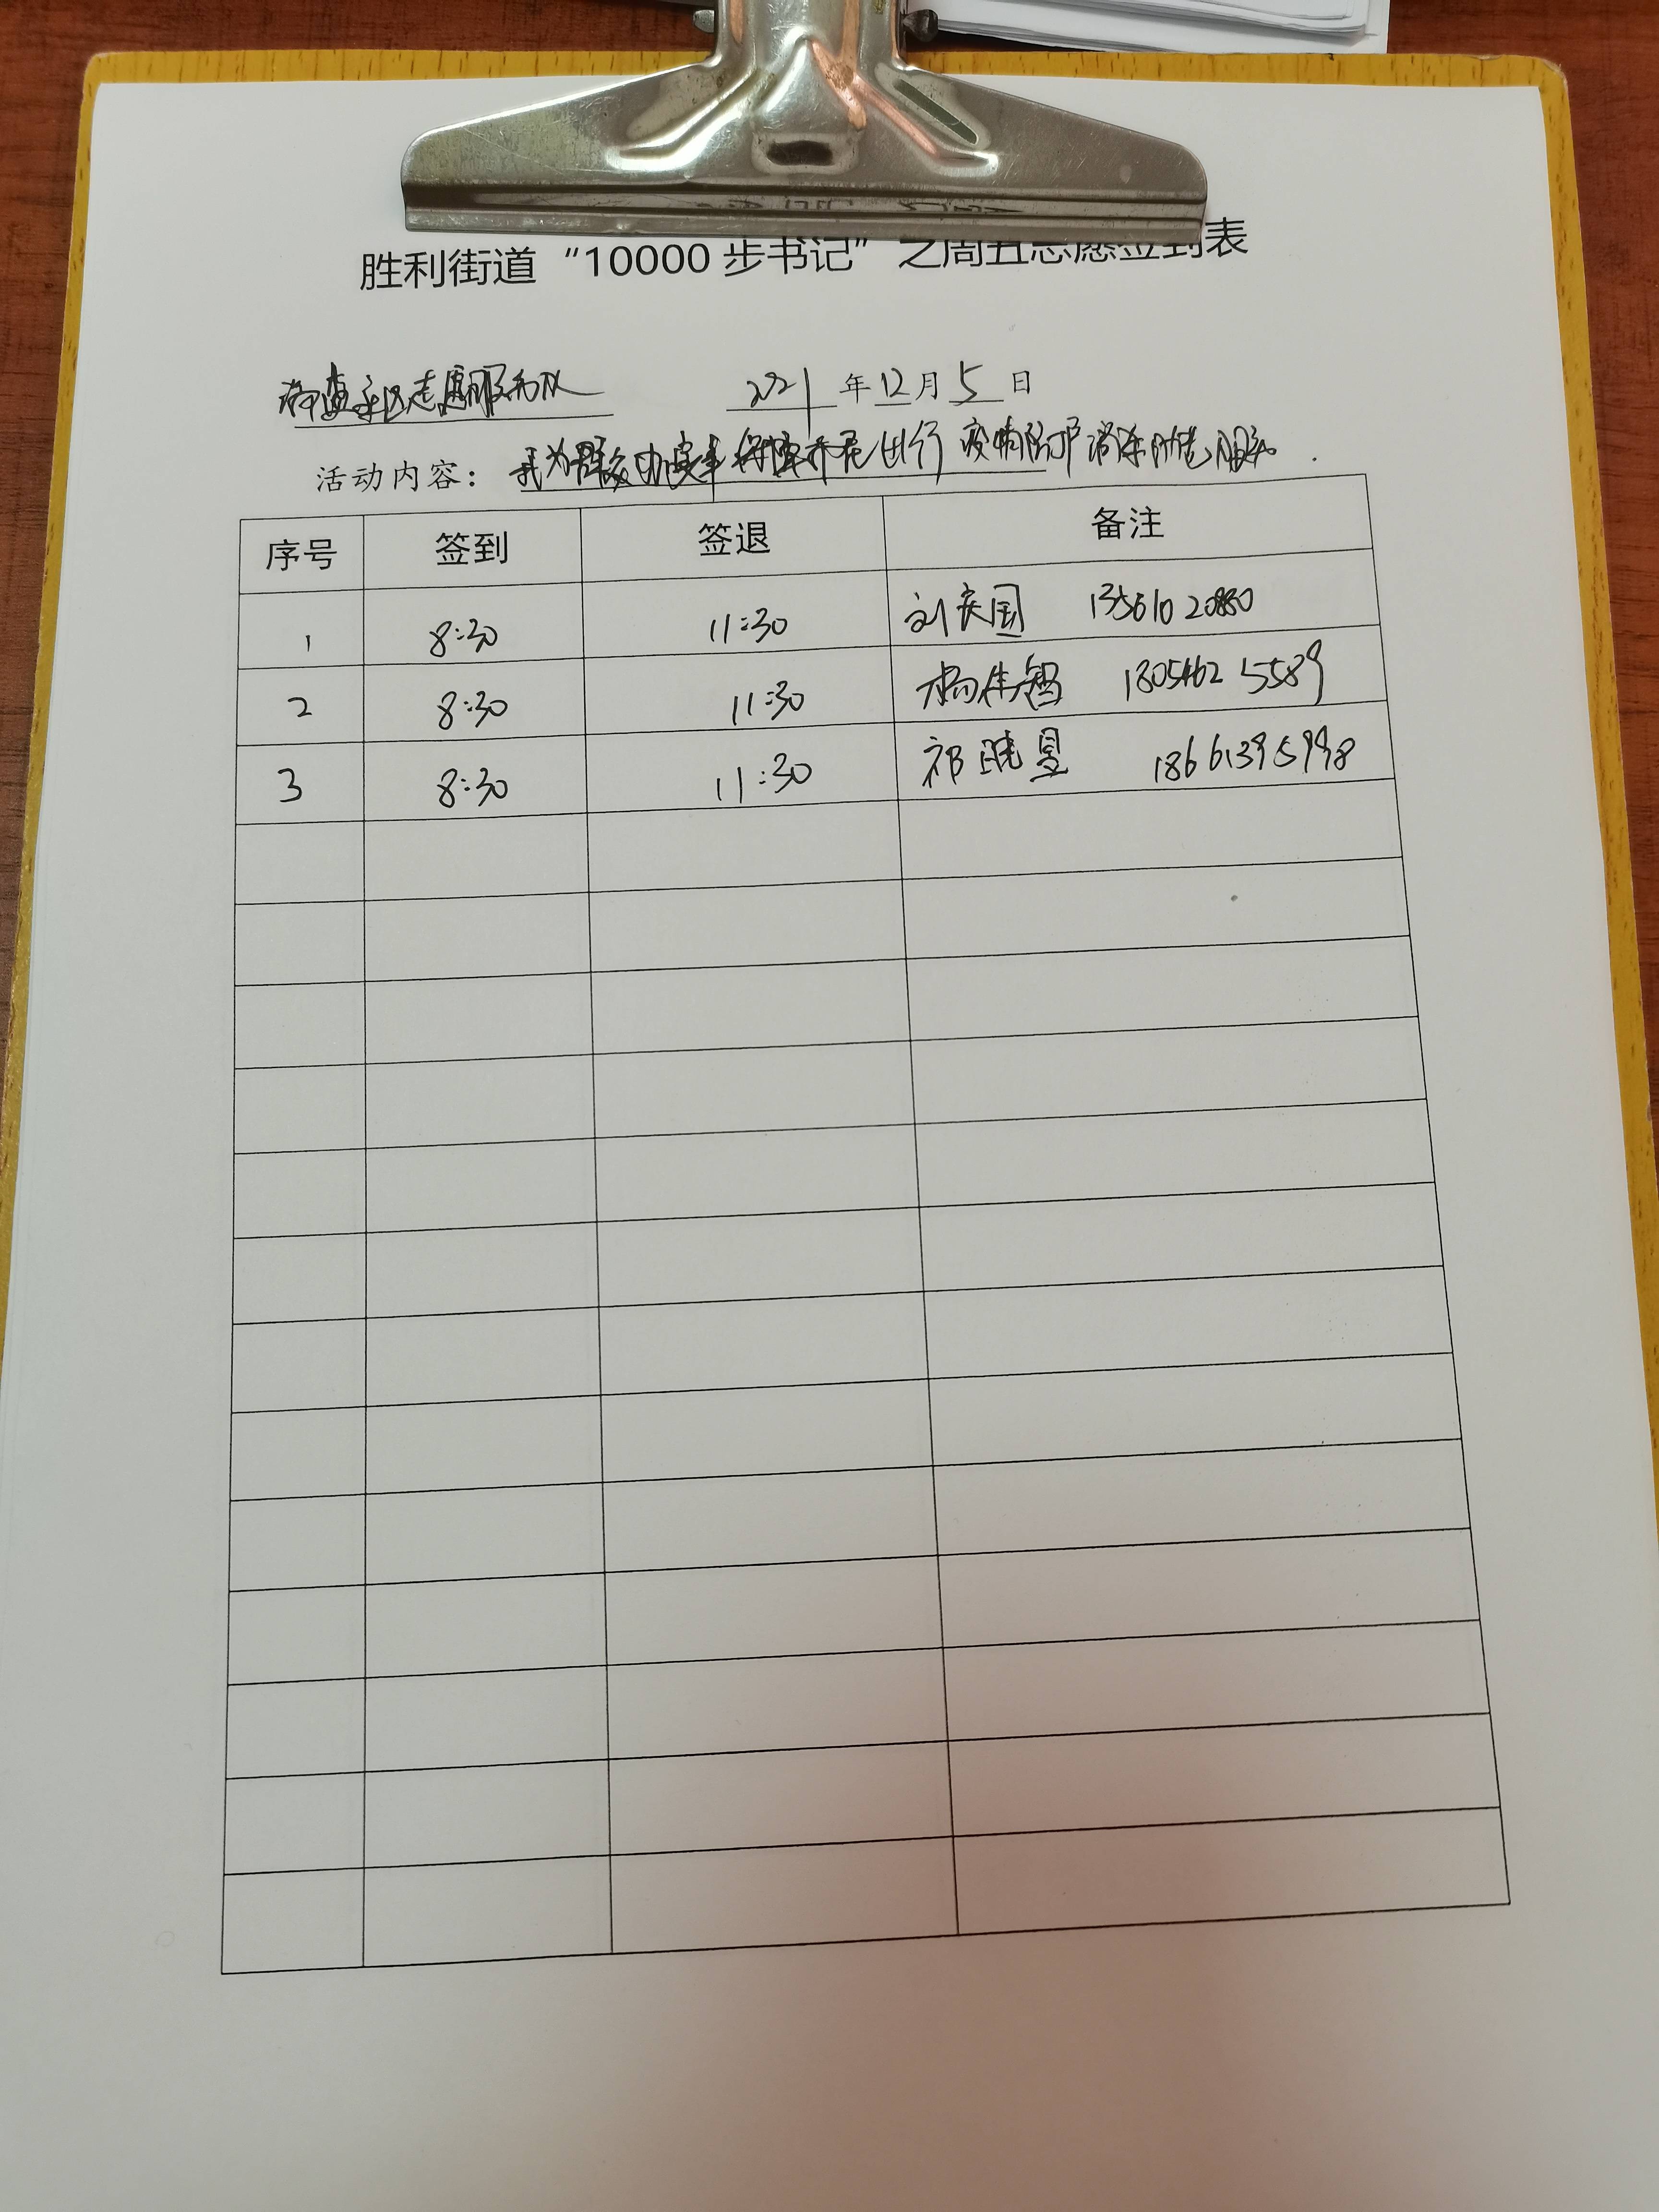 胜利街道“10000步书记”之周五志愿签到表
社区志愿服务队 2021年12月5日
活动内容：我为群众办实事 保障 出行 疫情防护 消毒 服务.
序号 签到 签退 备注
1 8:30 11:30 刘庆国
2 8:30 11:30 杨佳智 18054625589
3 8:30 11:30 祁晓昱 18661395998